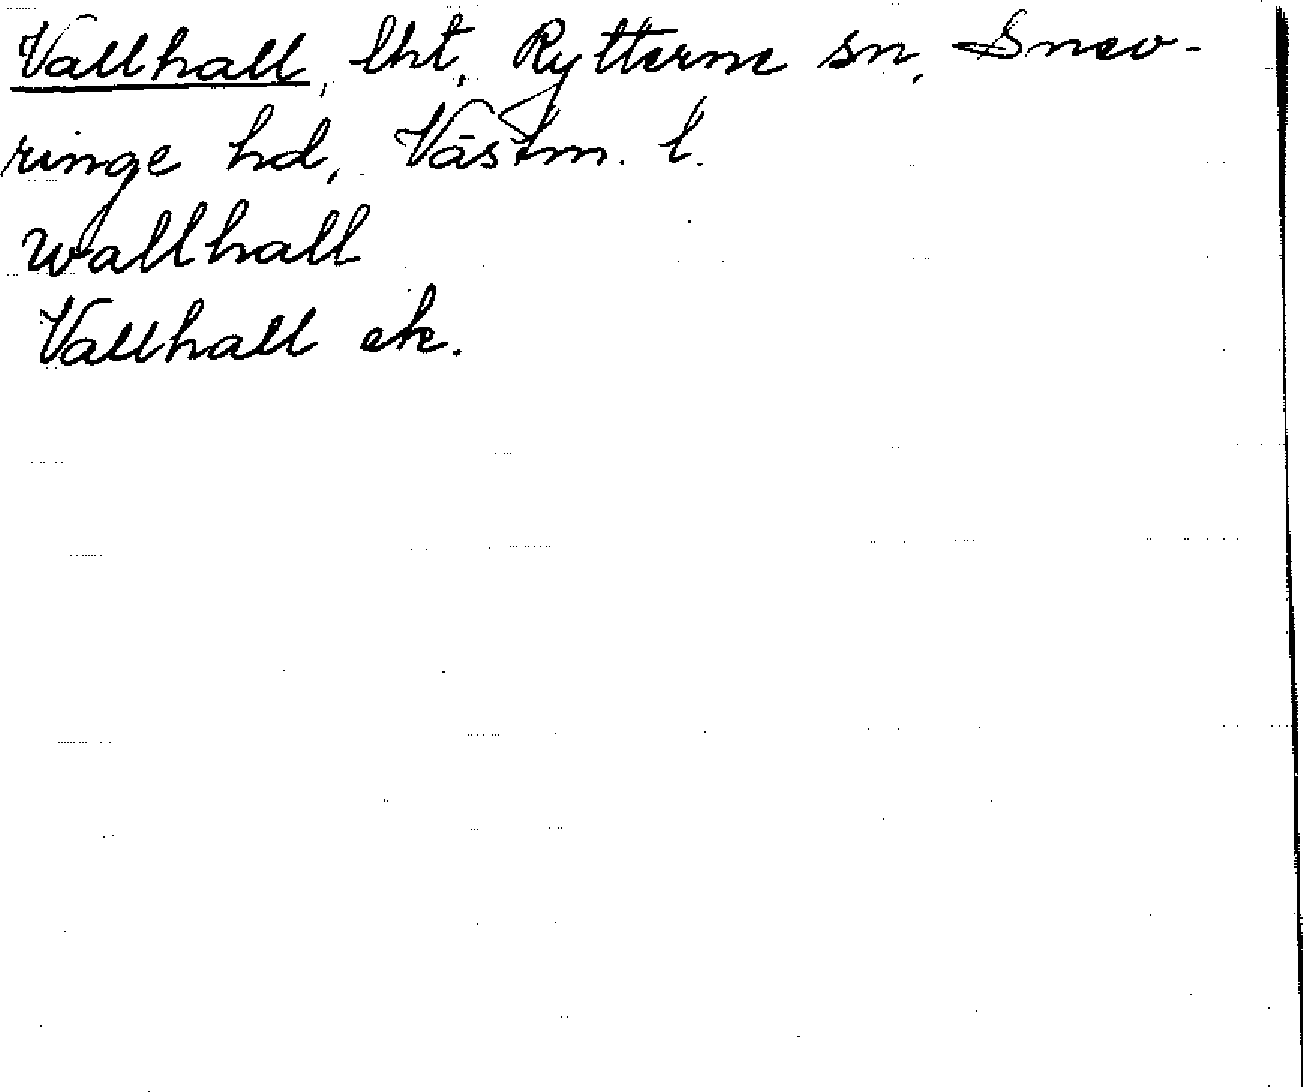 Vallhall, lht, Rytterne sn, Snev-
ringe hd, Västm. l.
wallhall
Vallhall ek.